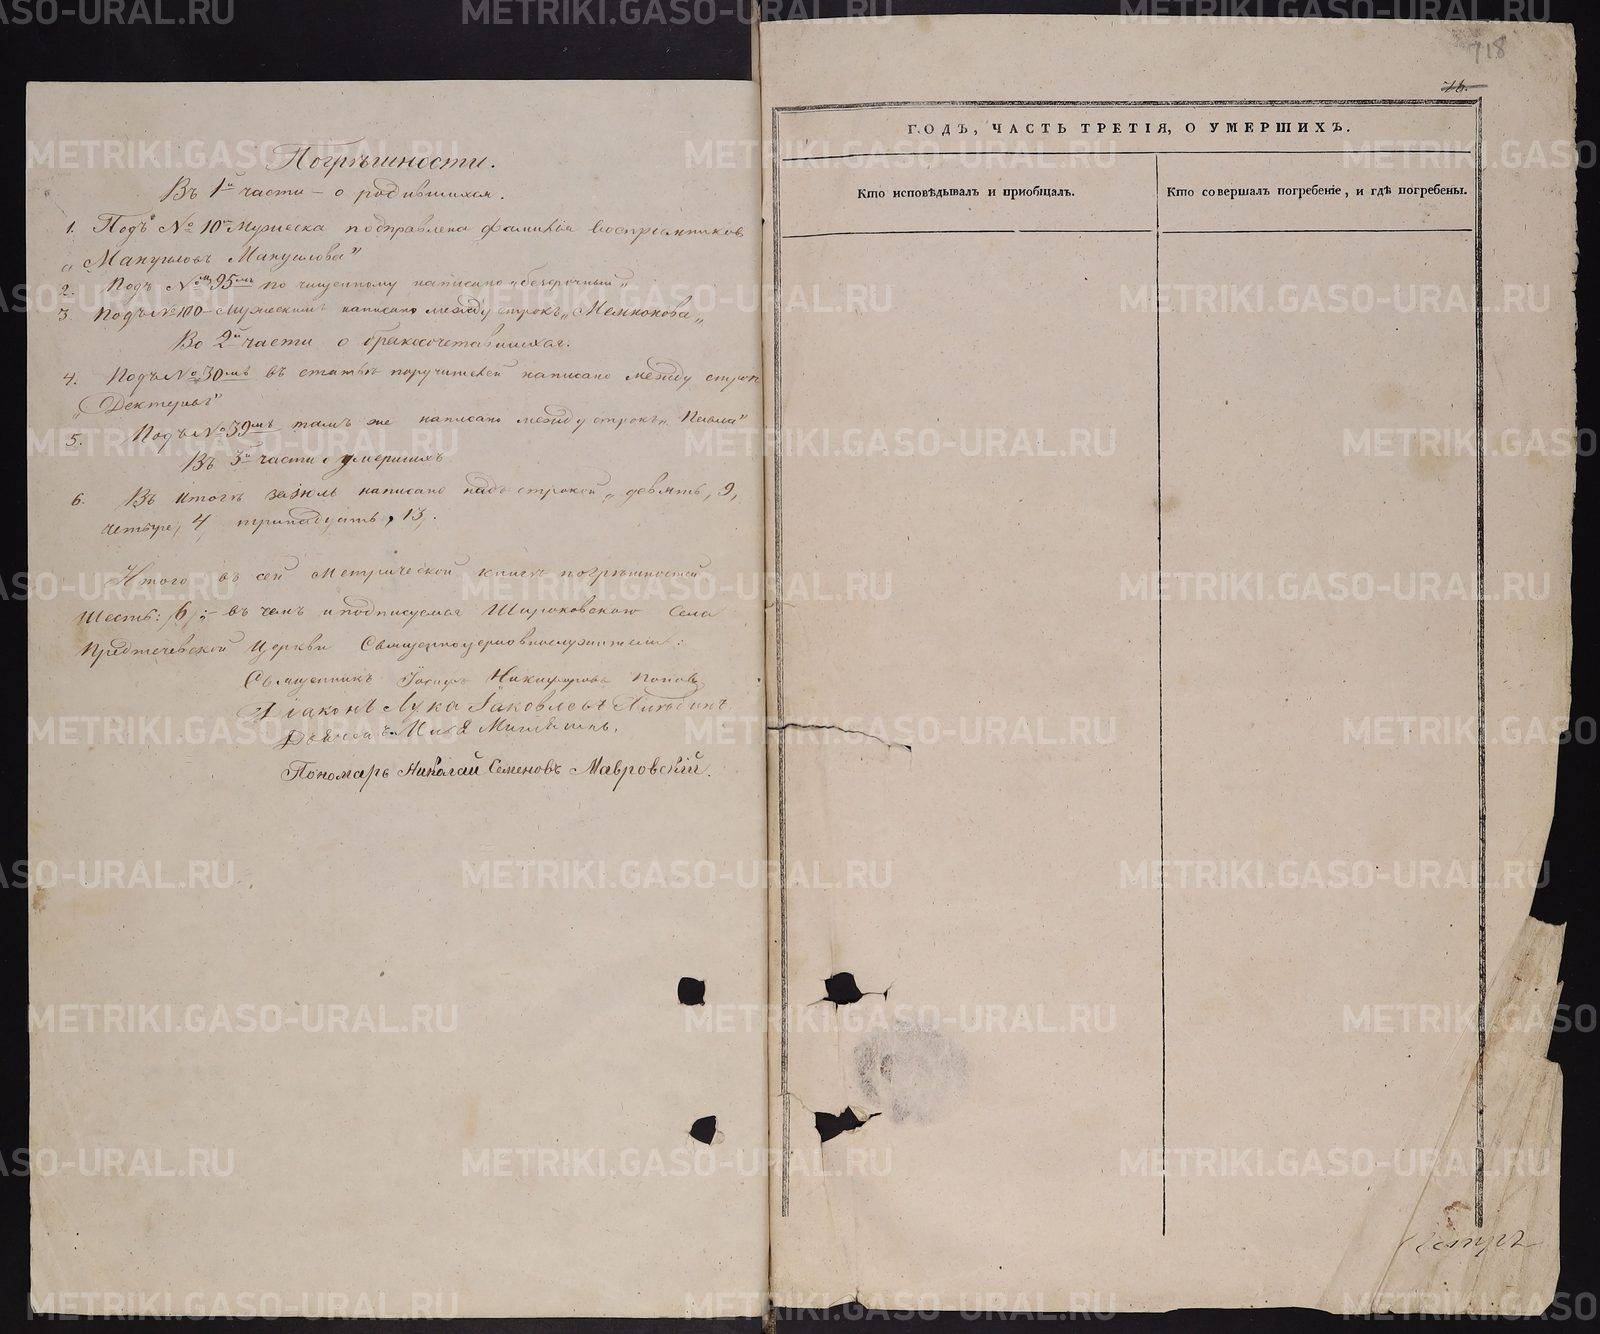 Погрѣшности.
Въ 1й части – о родившихся.
1. Подъ № 10м Мужеска подправлена фамилія воспріемниковъ
"Мануиловъ Мануилова"
2. Подъ № 95мъ по чищенному написано
3. Подъ № 100 Мужескимъ написано между строкъ
Во 2й части о бракосочетавшихся.
4. Подъ № 30мъ въ статьѣ поручителей написано между строкъ
"Дектерьвъ"
5. Подъ № 39мъ тамъ же написано между строкъ "Павла"
Въ 3й части о умершихъ
6. Въ итогѣ за Іюль написано надъ строкой "девять, 9,
четыре, 4, тринадцать, 13,.
Итого въ сей Метрической книгѣ погрѣшностей
Шесть: /6/:– въ чемъ и подписуемся Широковскаго Села
Предтечевской Церкви Священноцерковнослужители:
Священникъ Никифоровъ Поповъ
Діаконъ Лука Іаковлевъ
Дьячекъ Илья
Пономарь Николай Семеновъ Мавровскій.
718
76.
ГОДЪ, ЧАСТЬ ТРЕТІЯ, О УМЕРШИХЪ.
Кто исповѣдывалъ и пріобщалъ.
Кто совершалъ погребеніе, и гдѣ погребены.
METRIKI.GASO-URAL.RU